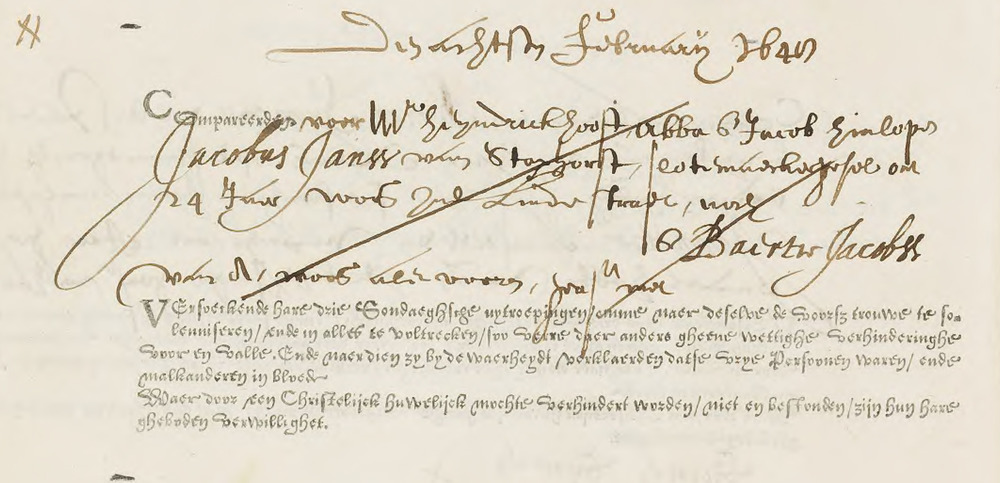 Den achtsten February 1640
Compareerden voor Mr Heyndrick Hooft Abba & Jacob Hinlopen
Jacobus Janss van Staphorst, slotemackergesel out
24 Jaer woont Linde straet, noch
& Baertie Jacobss
van A, woont als voren,
VErsoeckende hare drie Sondaeghsche uytroepingen/ omme naer deselve de voorsz trouwe te so-
lenniseren/ ende in alles te voltrecken/ soo verre daer anders gheene wettighe verhinderinghe
voor en valle. Ende naerdien zy by de waerheydt verklaerden datse vrye Persoonen waren/ ende
malkanderen in bloede
Waer door een Christelijck huwelijck mochte verhindert worden/ niet en bestonden/ zijn hun hare
gheboden verwillighet.